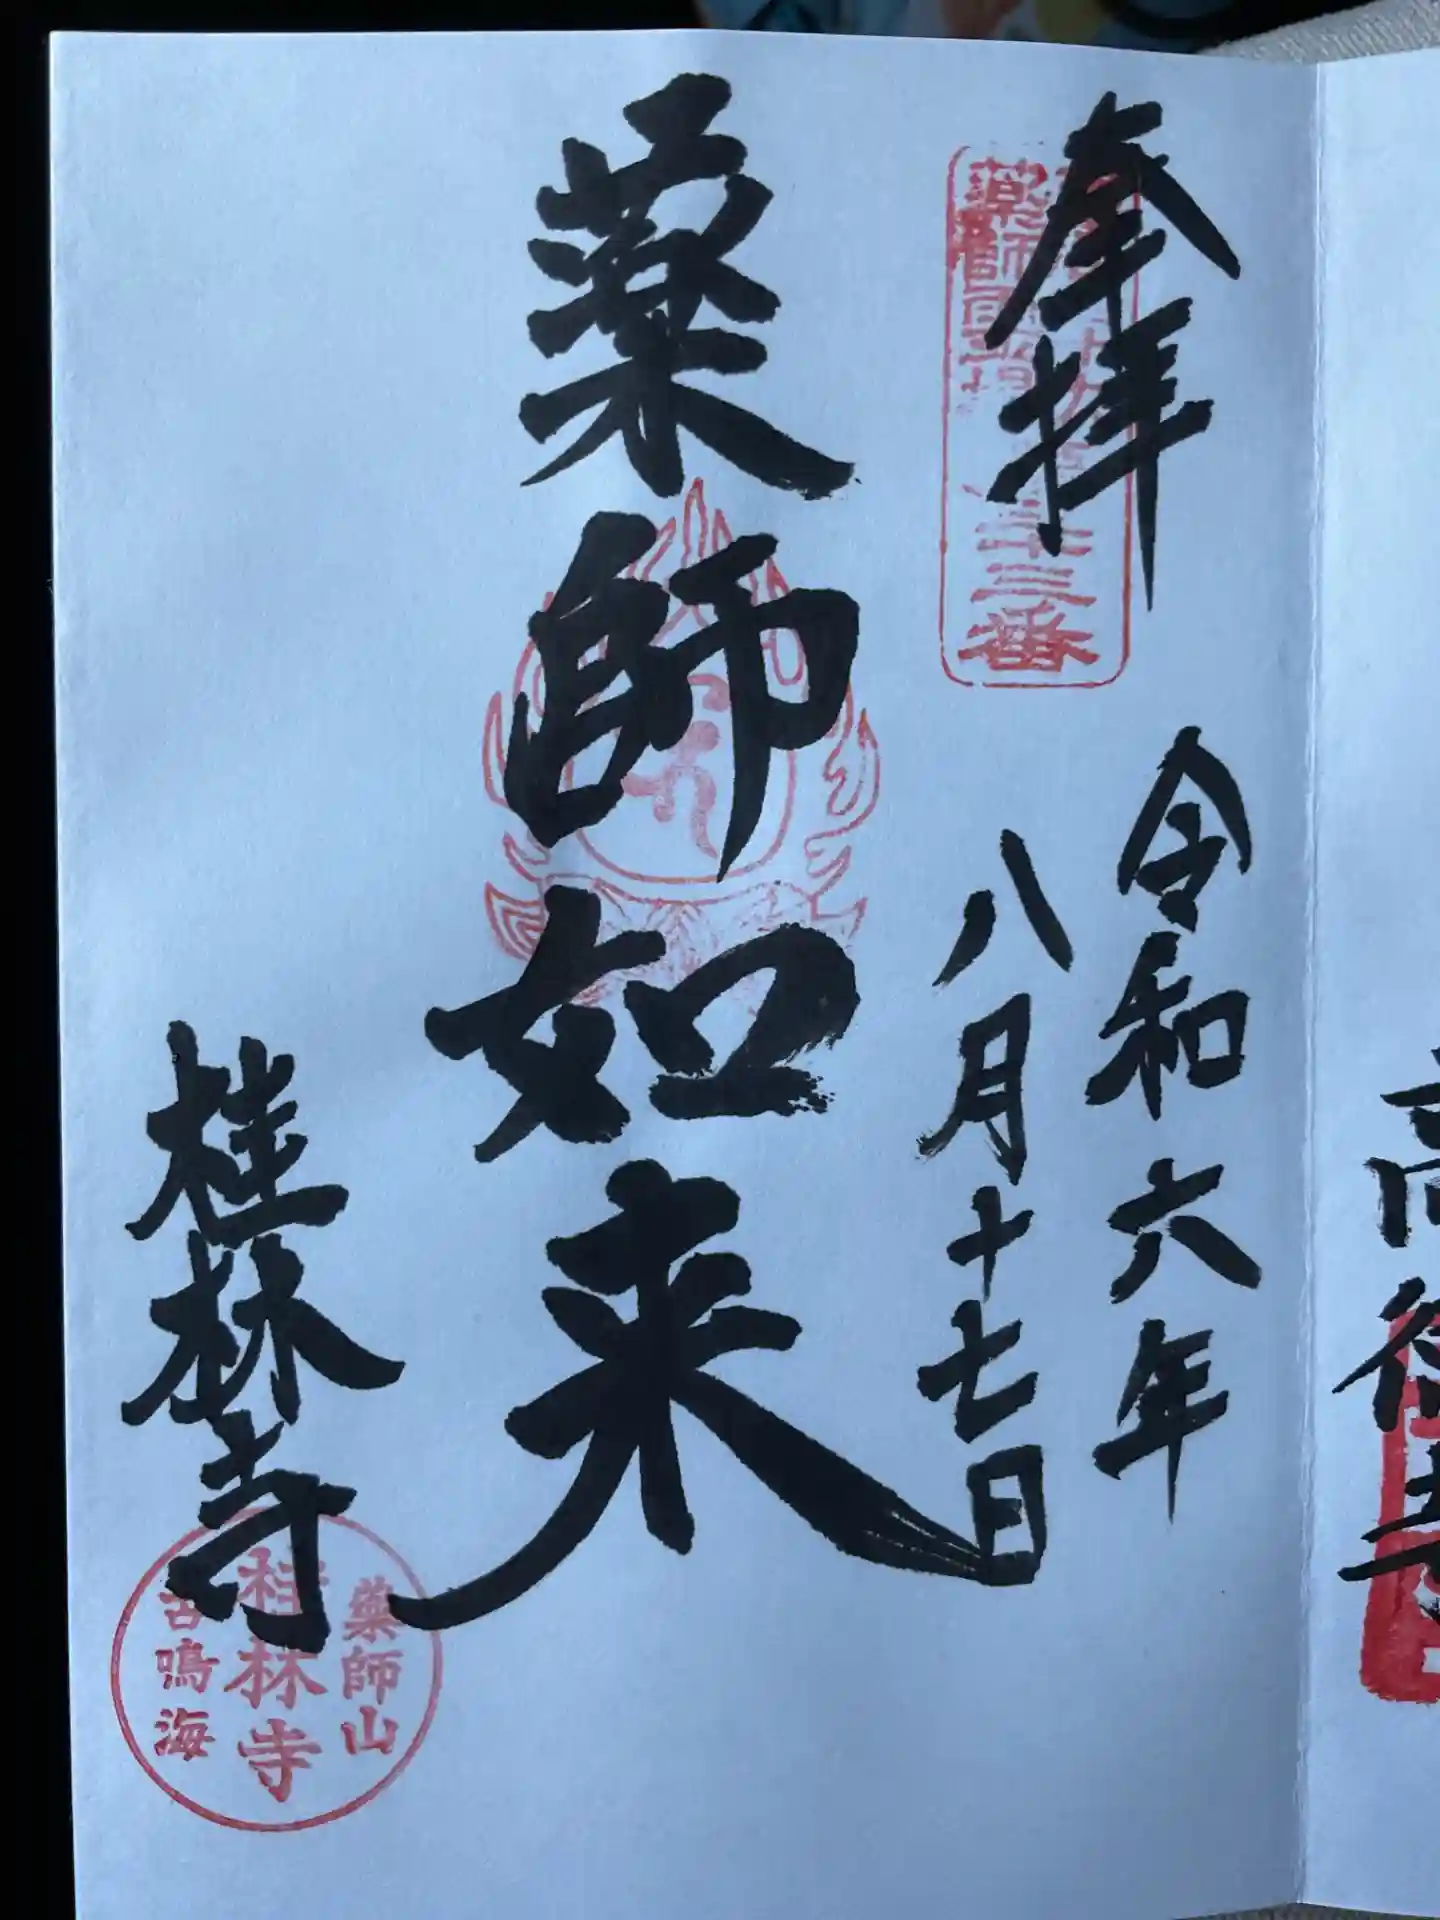 奉拝
令和六年
八月十七日
薬師如来
桂林寺
薬師
三番
薬師山
桂林寺
古鳴海
高徳